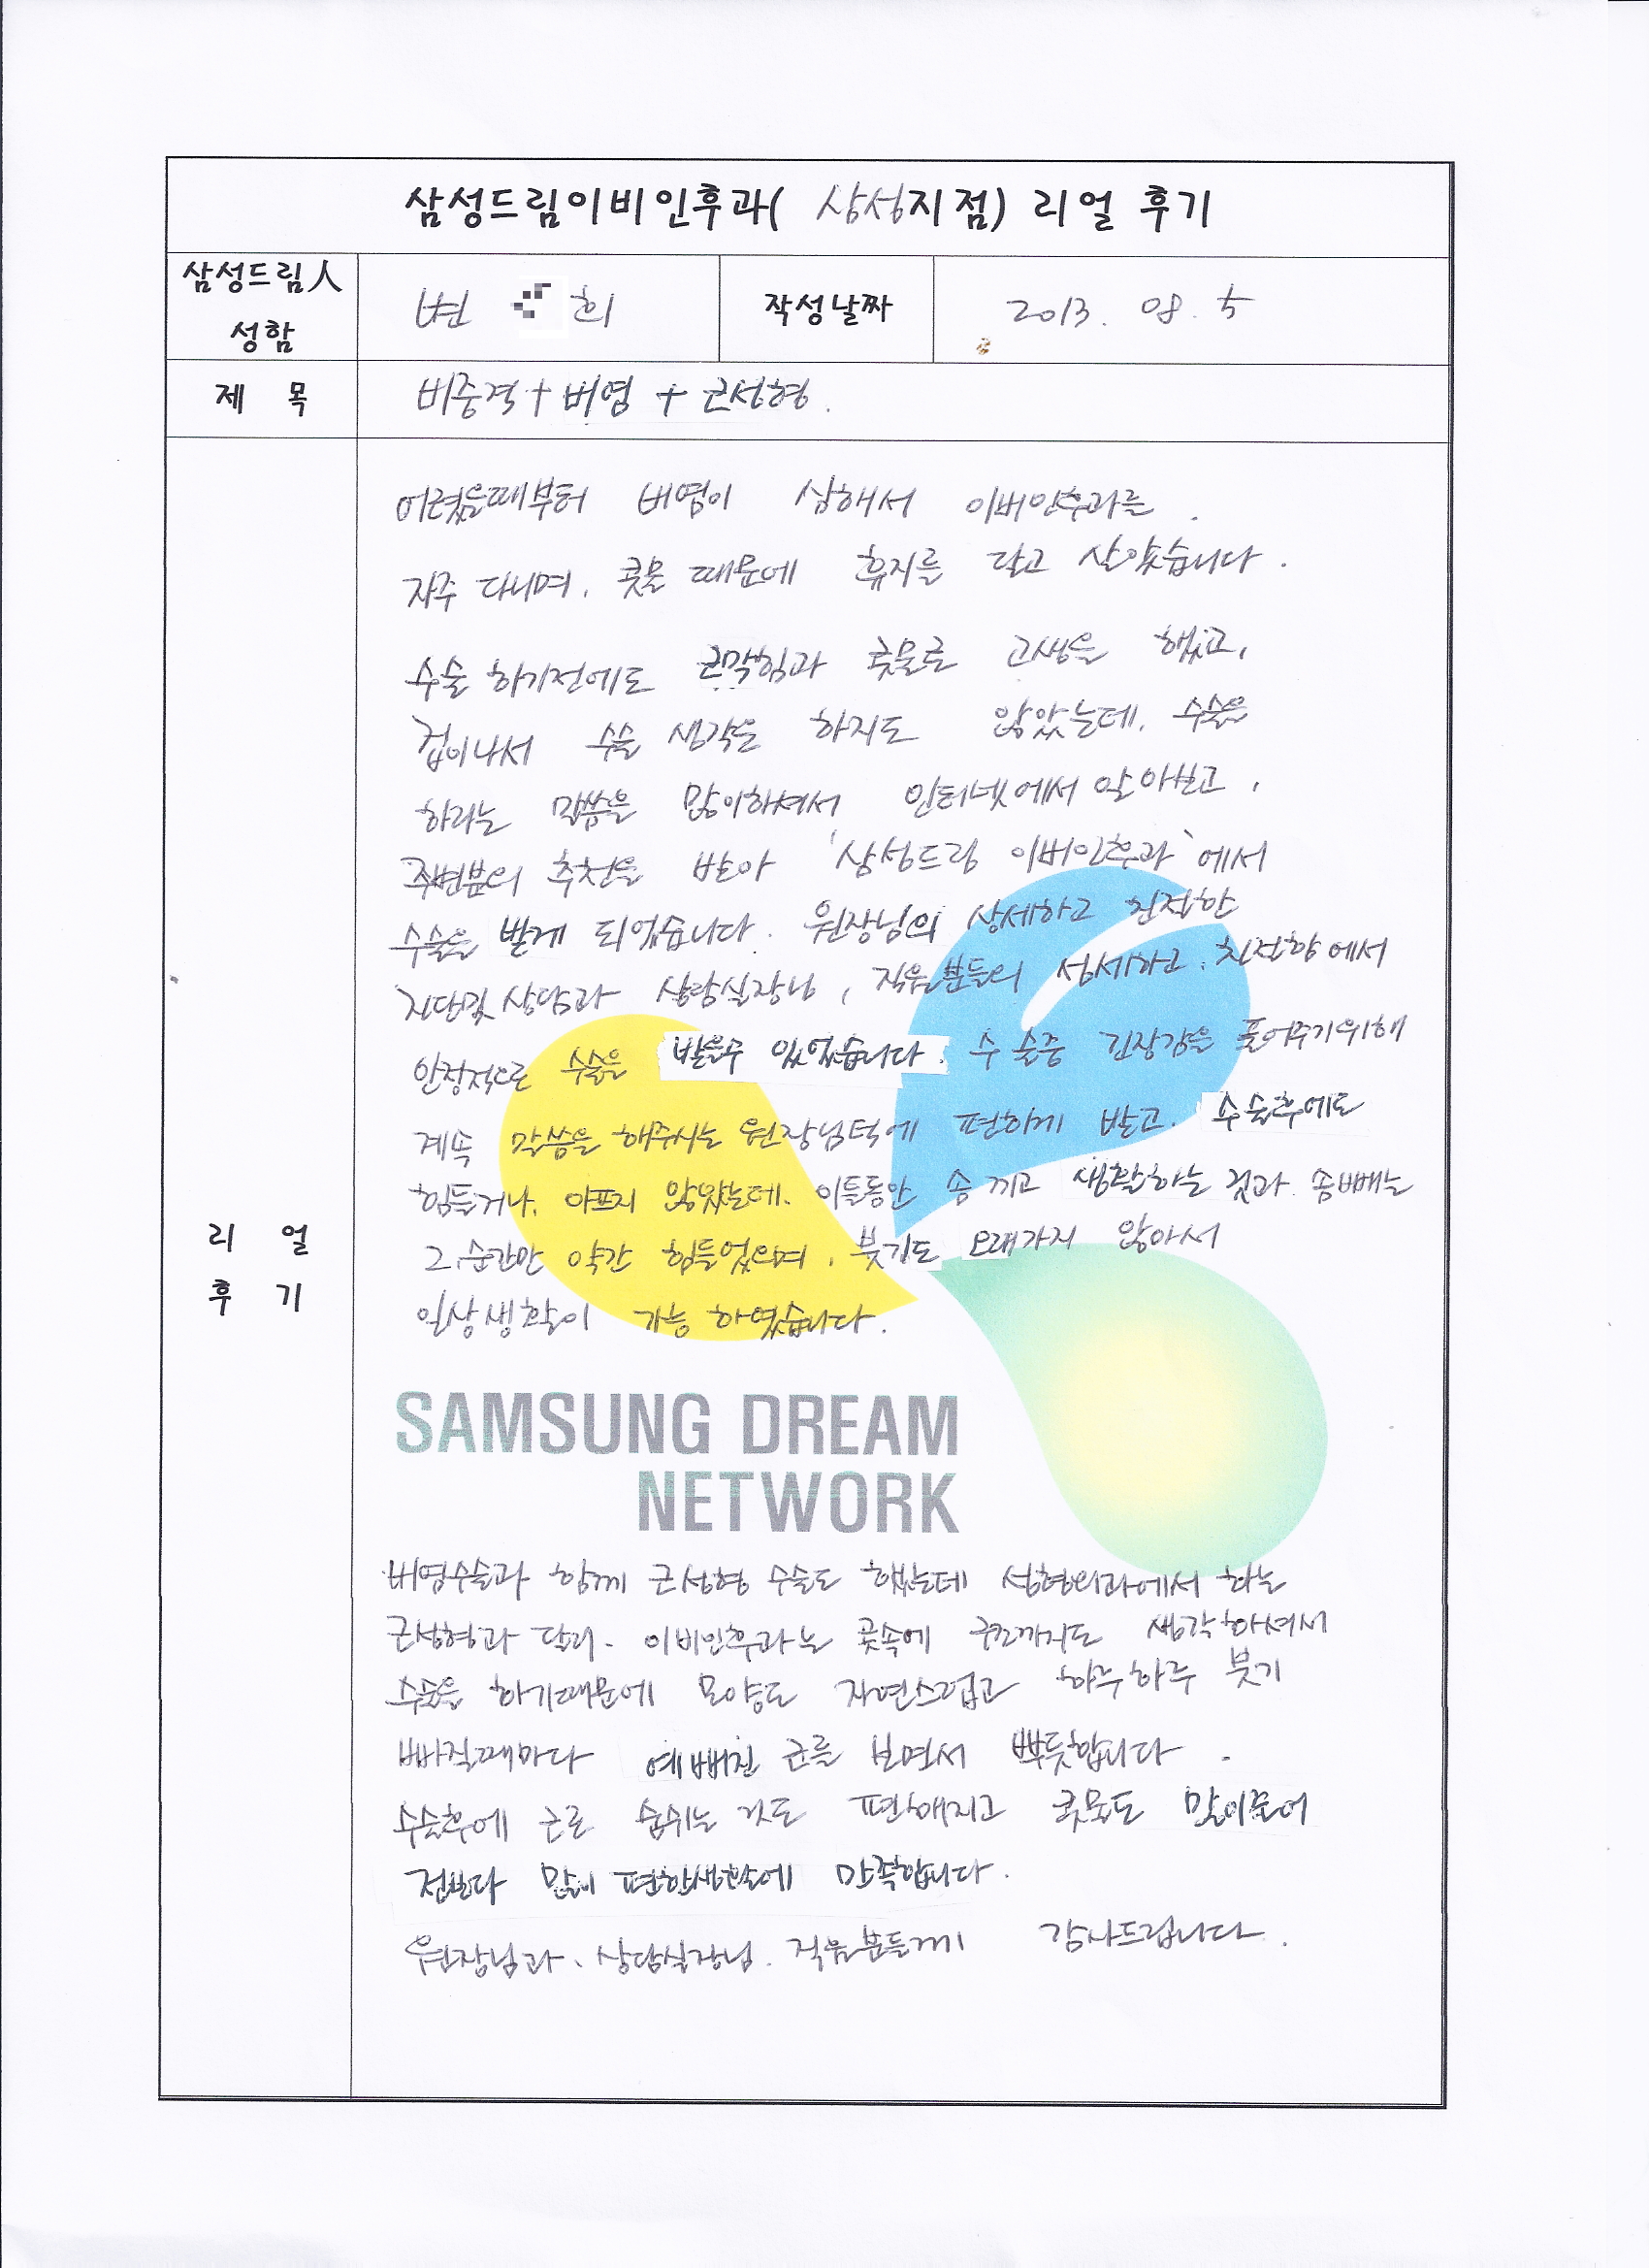 삼성드림이비인후과( 삼성지점) 리얼 후기
삼성드림人
성함
변 희
작성날짜
2013. 08. 5
제 목
비중격 + 비염 + 코성형.
어렸을때부터 비염이 심해서 이비인후과를
자주 다니며, 콧물 때문에 휴지를 달고 살았습니다.
수술 하기전에도 코막힘과 콧물로 고생을 했고,
겁이나서 수술 생각을 하지도 않았는데, 수술을
하라는 말씀을 많이하셔서 인터넷에서 알아보고,
주변분의 추천을 받아 '삼성드림 이비인후과'에서
수술을 받게 되었습니다. 원장님의 상세하고 친절한
진단및 상담과 상담실장님, 직원분들의 섬세하고, 친절함에서
안정적으로 수술을 받을수 있었습니다. 수술중 긴장감을 풀어주기위해
계속 말씀을 해주시는 원장님덕에 편하게 받고, 수술후에도
힘들거나, 아프지 않았는데, 이틀동안 솜 끼고 생활하는 것과 솜빼는
그, 순간만 약간 힘들었으며, 붓기도 오래가지 않아서
일상생활이 가능 하였습니다.
SAMSUNG DREAM
NETWORK
비염수술과 함께 코성형 수술도 했는데 성형외과에서 하는
코성형과 달리, 이비인후과는 콧속에 구조까지도 생각하셔서
수술을 하기때문에 모양도 자연스럽고 하루하루 붓기
빠질때마다 예뻐진 코를 보면서 뿌듯합니다.
수술후에 코로 숨쉬는 것도 편해지고 콧물도 많이줄어
전보다 많이 편한생활에 만족합니다.
원장님과, 상담실장님, 직원분들께 감사드립니다.
리 얼
후 기